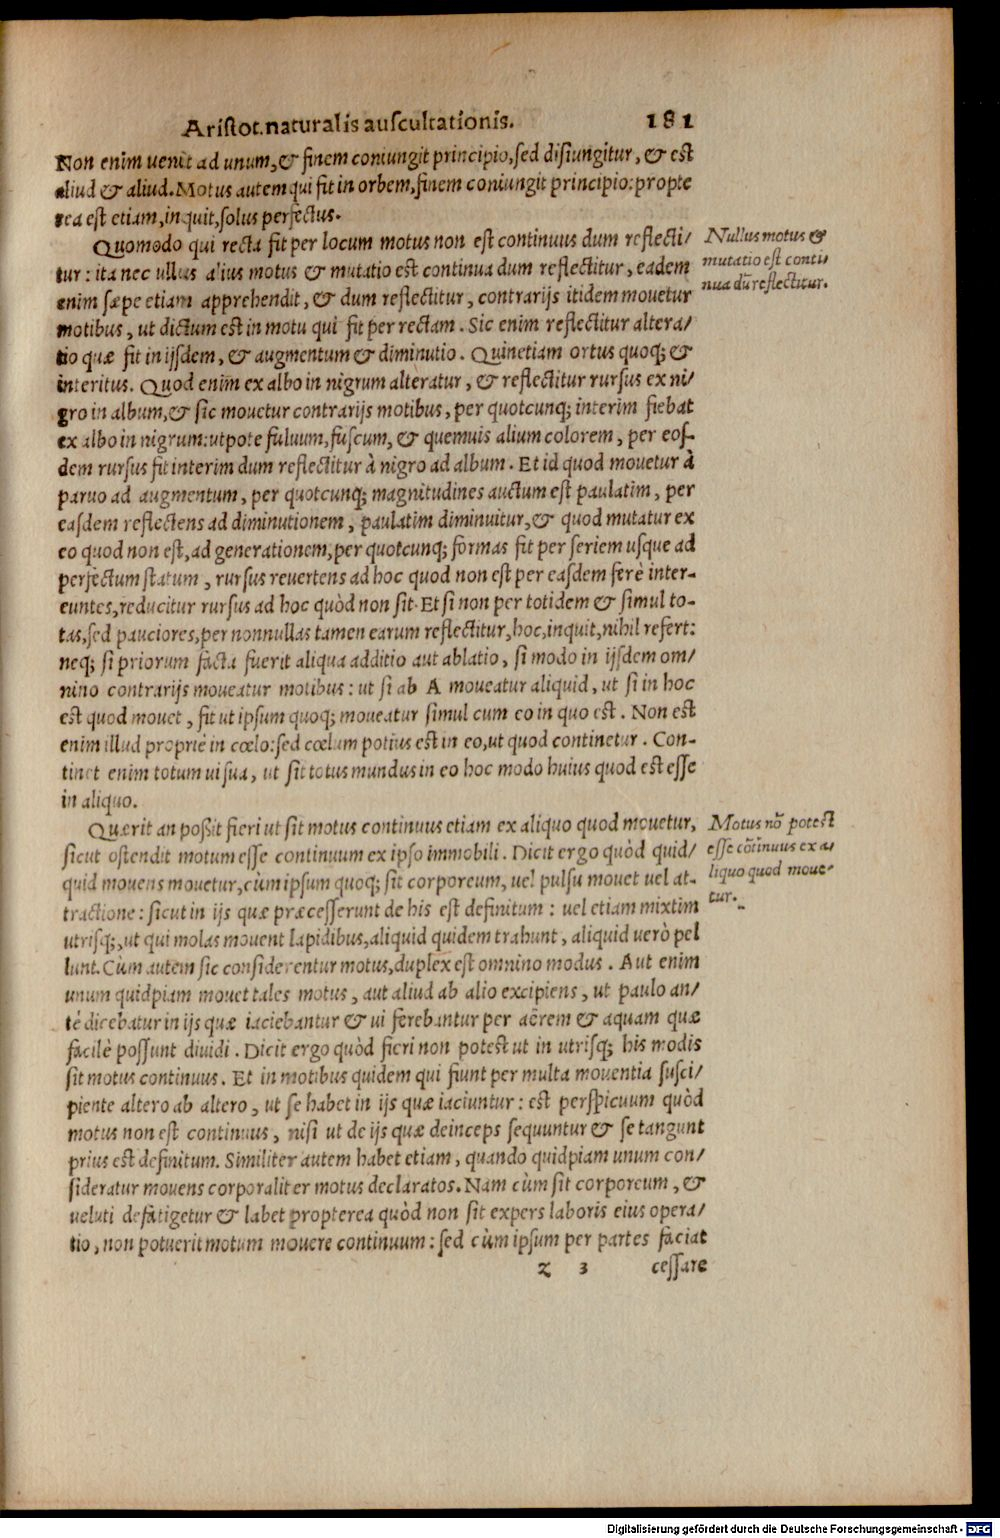 Aristot. naturalis auscultationis. 181
Non enim uenit ad unum, & finem coniungit principio, sed disiungitur, & est
aliud & aliud. Motus autem qui fit in orbem, finem coniungit principio: propte
rea est etiam, inquit, solus perfectus.
Quomodo qui recta fit per locum motus non est continuus dum reflecti/
tur: ita nec ullus alius motus & mutatio est continua dum reflectitur, eadem
enim sæpe etiam apprehendit, & dum reflectitur, contrarijs itidem mouetur
motibus, ut dictum est in motu qui fit per rectam. Sic enim reflectitur altera/
tio quæ fit in ijsdem, & augmentum & diminutio. Quinetiam ortus quoq; &
interitus. Quod enim ex albo in nigrum alteratur, & reflectitur rursus ex ni/
gro in album, & sic mouetur contrarijs motibus, per quotcunq; interim fiebat
ex albo in nigrum: utpote fuluum, fuscum, & quemuis alium colorem, per eos-
dem rursus fit interim dum reflectitur à nigro ad album. Et id quod mouetur à
paruo ad augmentum, per quotcunq; magnitudines auctum est paulatim, per
easdem reflectens ad diminutionem, paulatim diminuitur, & quod mutatur ex
eo quod non est, ad generationem, per quotcunq; formas fit per seriem usque ad
perfectum statum, rursus reuertens ad hoc quod non est per easdem ferè inter-
euntes, reducitur rursus ad hoc quòd non sit. Et si non per totidem & simul to-
tas, sed pauciores, per nonnullas tamen earum reflectitur, hoc, inquit, nihil refert:
neq; si priorum facta fuerit aliqua additio aut ablatio, si modo in ijsdem om/
nino contrarijs moueatur motibus: ut si ab A moueatur aliquid, ut si in hoc
est quod mouet, fit ut ipsum quoq; moueatur simul cum eo in quo est. Non est
enim illud propriè in cœlo: sed cœlum potius est in eo, ut quod continetur. Con-
tinet enim totum ui sua, ut sit totus mundus in eo hoc modo huius quod est esse
in aliquo.
Quærit an poßit fieri ut sit motus continuus etiam ex aliquo quod mouetur,
sicut ostendit motum esse continuum ex ipso immobili. Dicit ergo quòd quid/
quid mouens mouetur, cùm ipsum quoq; sit corporeum, uel pulsu mouet uel at-
tractione: sicut in ijs quæ præcesserunt de his est definitum: uel etiam mixtim
utrisq;, ut qui molas mouent lapidibus, aliquid quidem trahunt, aliquid uerò pel
lunt. Cùm autem sic considerentur motus, duplex est omnino modus. Aut enim
unum quidpiam mouet tales motus, aut aliud ab alio excipiens, ut paulo an/
tè dicebatur in ijs quæ iaciebantur & ui ferebantur per aërem & aquam quæ
facilè possunt diuidi. Dicit ergo quòd fieri non potest ut in utrisq; his modis
sit motus continuus. Et in motibus quidem qui fiunt per multa mouentia susci/
piente altero ab altero, ut se habet in ijs quæ iaciuntur: est perspicuum quòd
motus non est continuus, nisi ut de ijs quæ deinceps sequuntur & se tangunt
prius est definitum. Similiter autem habet etiam, quando quidpiam unum con/
sideratur mouens corporaliter motus declaratos. Nam cùm sit corporeum, &
ueluti defatigetur & labet propterea quòd non sit expers laboris eius opera/
tio, non potuerit motum mouere continuum: sed cùm ipsum per partes faciat
z 3 cessare
Nullus motus &
mutatio est conti/
nua dũ reflectitur.
Motus nõ potest
esse cõtinuus ex a/
liquo quod moue-
tur.
Digitalisierung gefördert durch die Deutsche Forschungsgemeinschaft - DFG